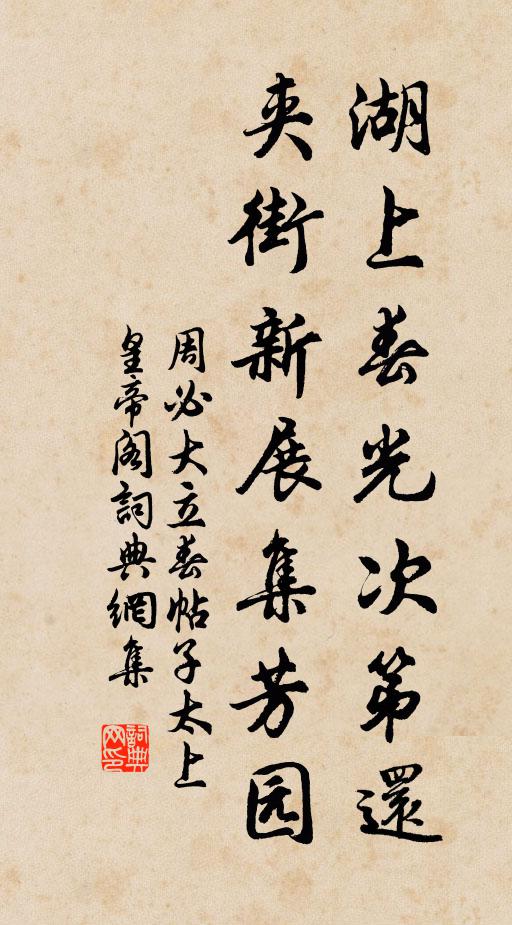 湖上春光次第還
夾街新展集芳园
周必大立春帖子太上
皇帝阁詞典網集
詞典网印